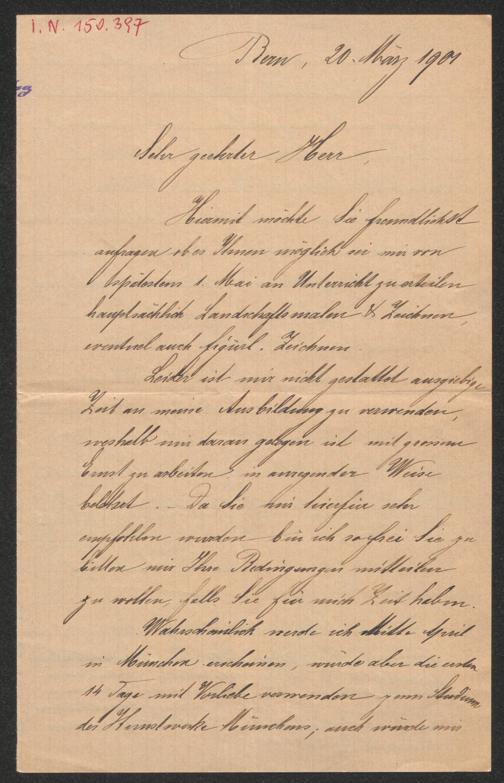 I.N. 150.397
Bern, 20. März 1901
Sehr geehrter Herr,
Hiermit möchte Sie freundlichst
anfragen ob es Ihnen möglich sei mir von
spätestens 1. Mai an Unterricht zu erteilen
hauptsächlich Landschaftsmalen & Zeichnen,
eventuel auch figürl. Zeichnen.
Leider ist mir nicht gestattet ausgiebige
Zeit an meine Ausbildung zu verwenden,
weshalb mir daran gelegen ist mit grossem
Ernst zu arbeiten in anregender Weise
. – Da Sie mir hierfür sehr
empfohlen wurden bin ich so frei Sie zu
bitten mir Ihre Bedingungen mitteilen
zu wollen, falls Sie für mich Zeit haben.
Wahrscheinlich werde ich Mitte April
in München erscheinen, würde aber die ersten
14 Tage mit Vorliebe verwenden zum Studium
der Kunstwerke Münchens, auch würde mir